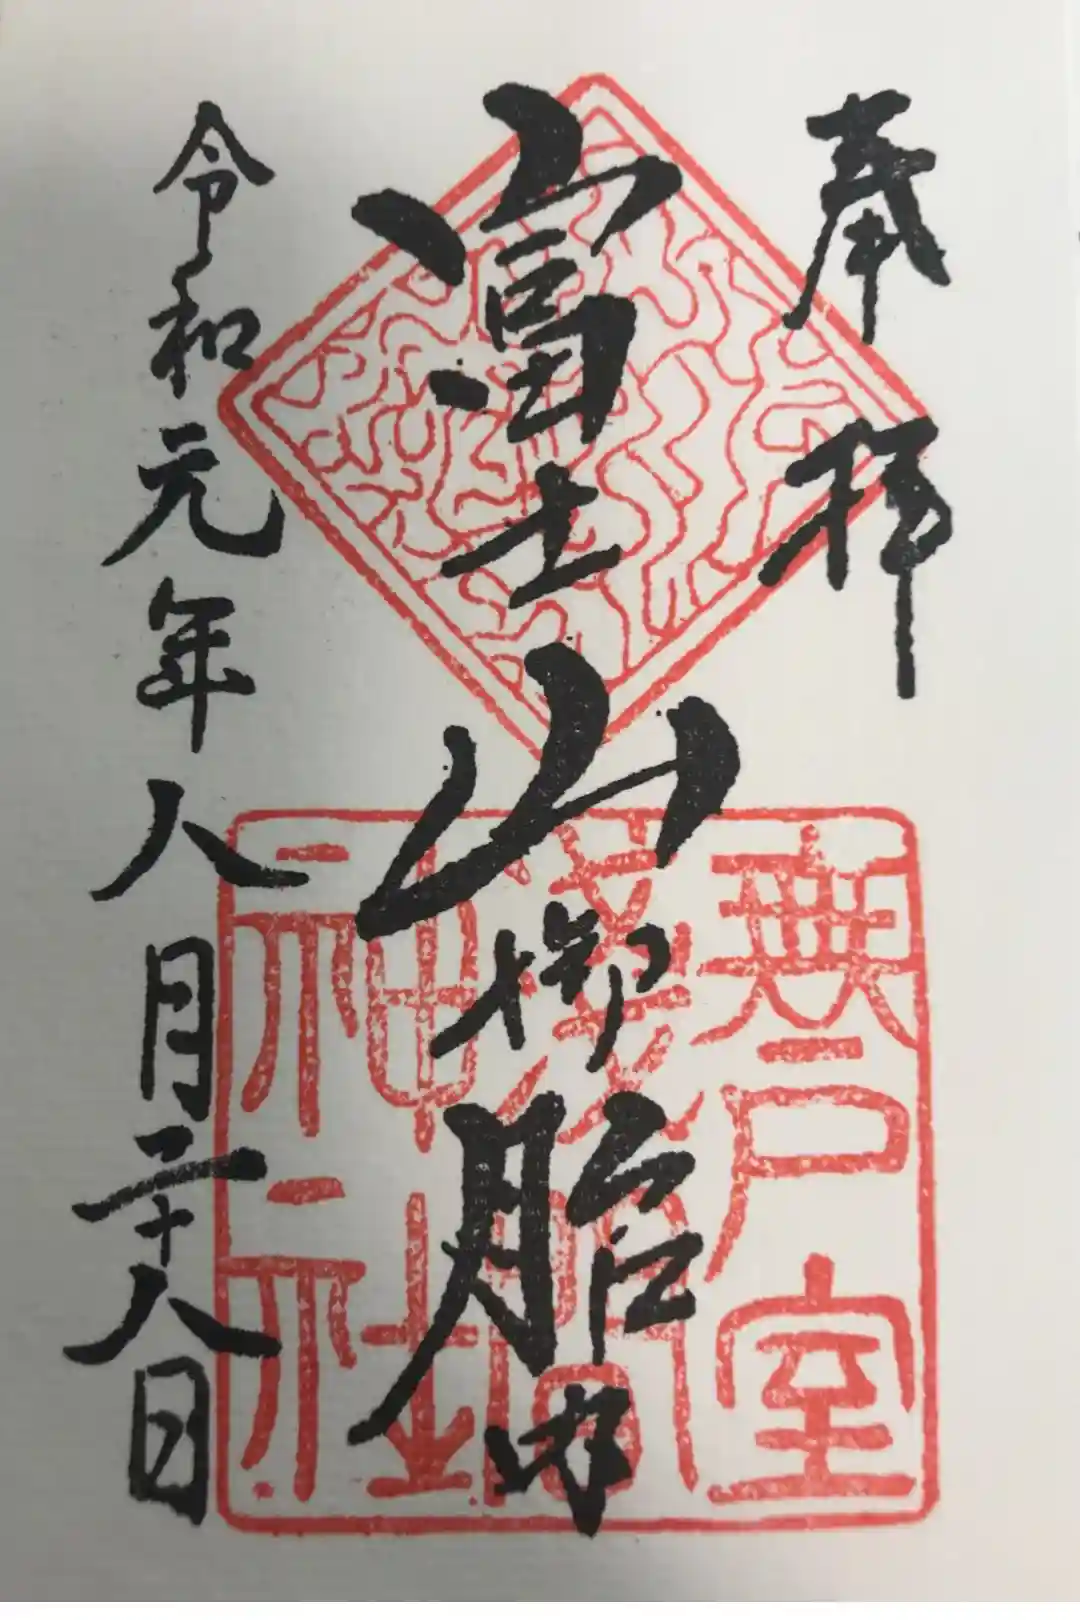 奉拝
富士山御胎内
令和元年八月二十八日
無戸室
浅間
神社